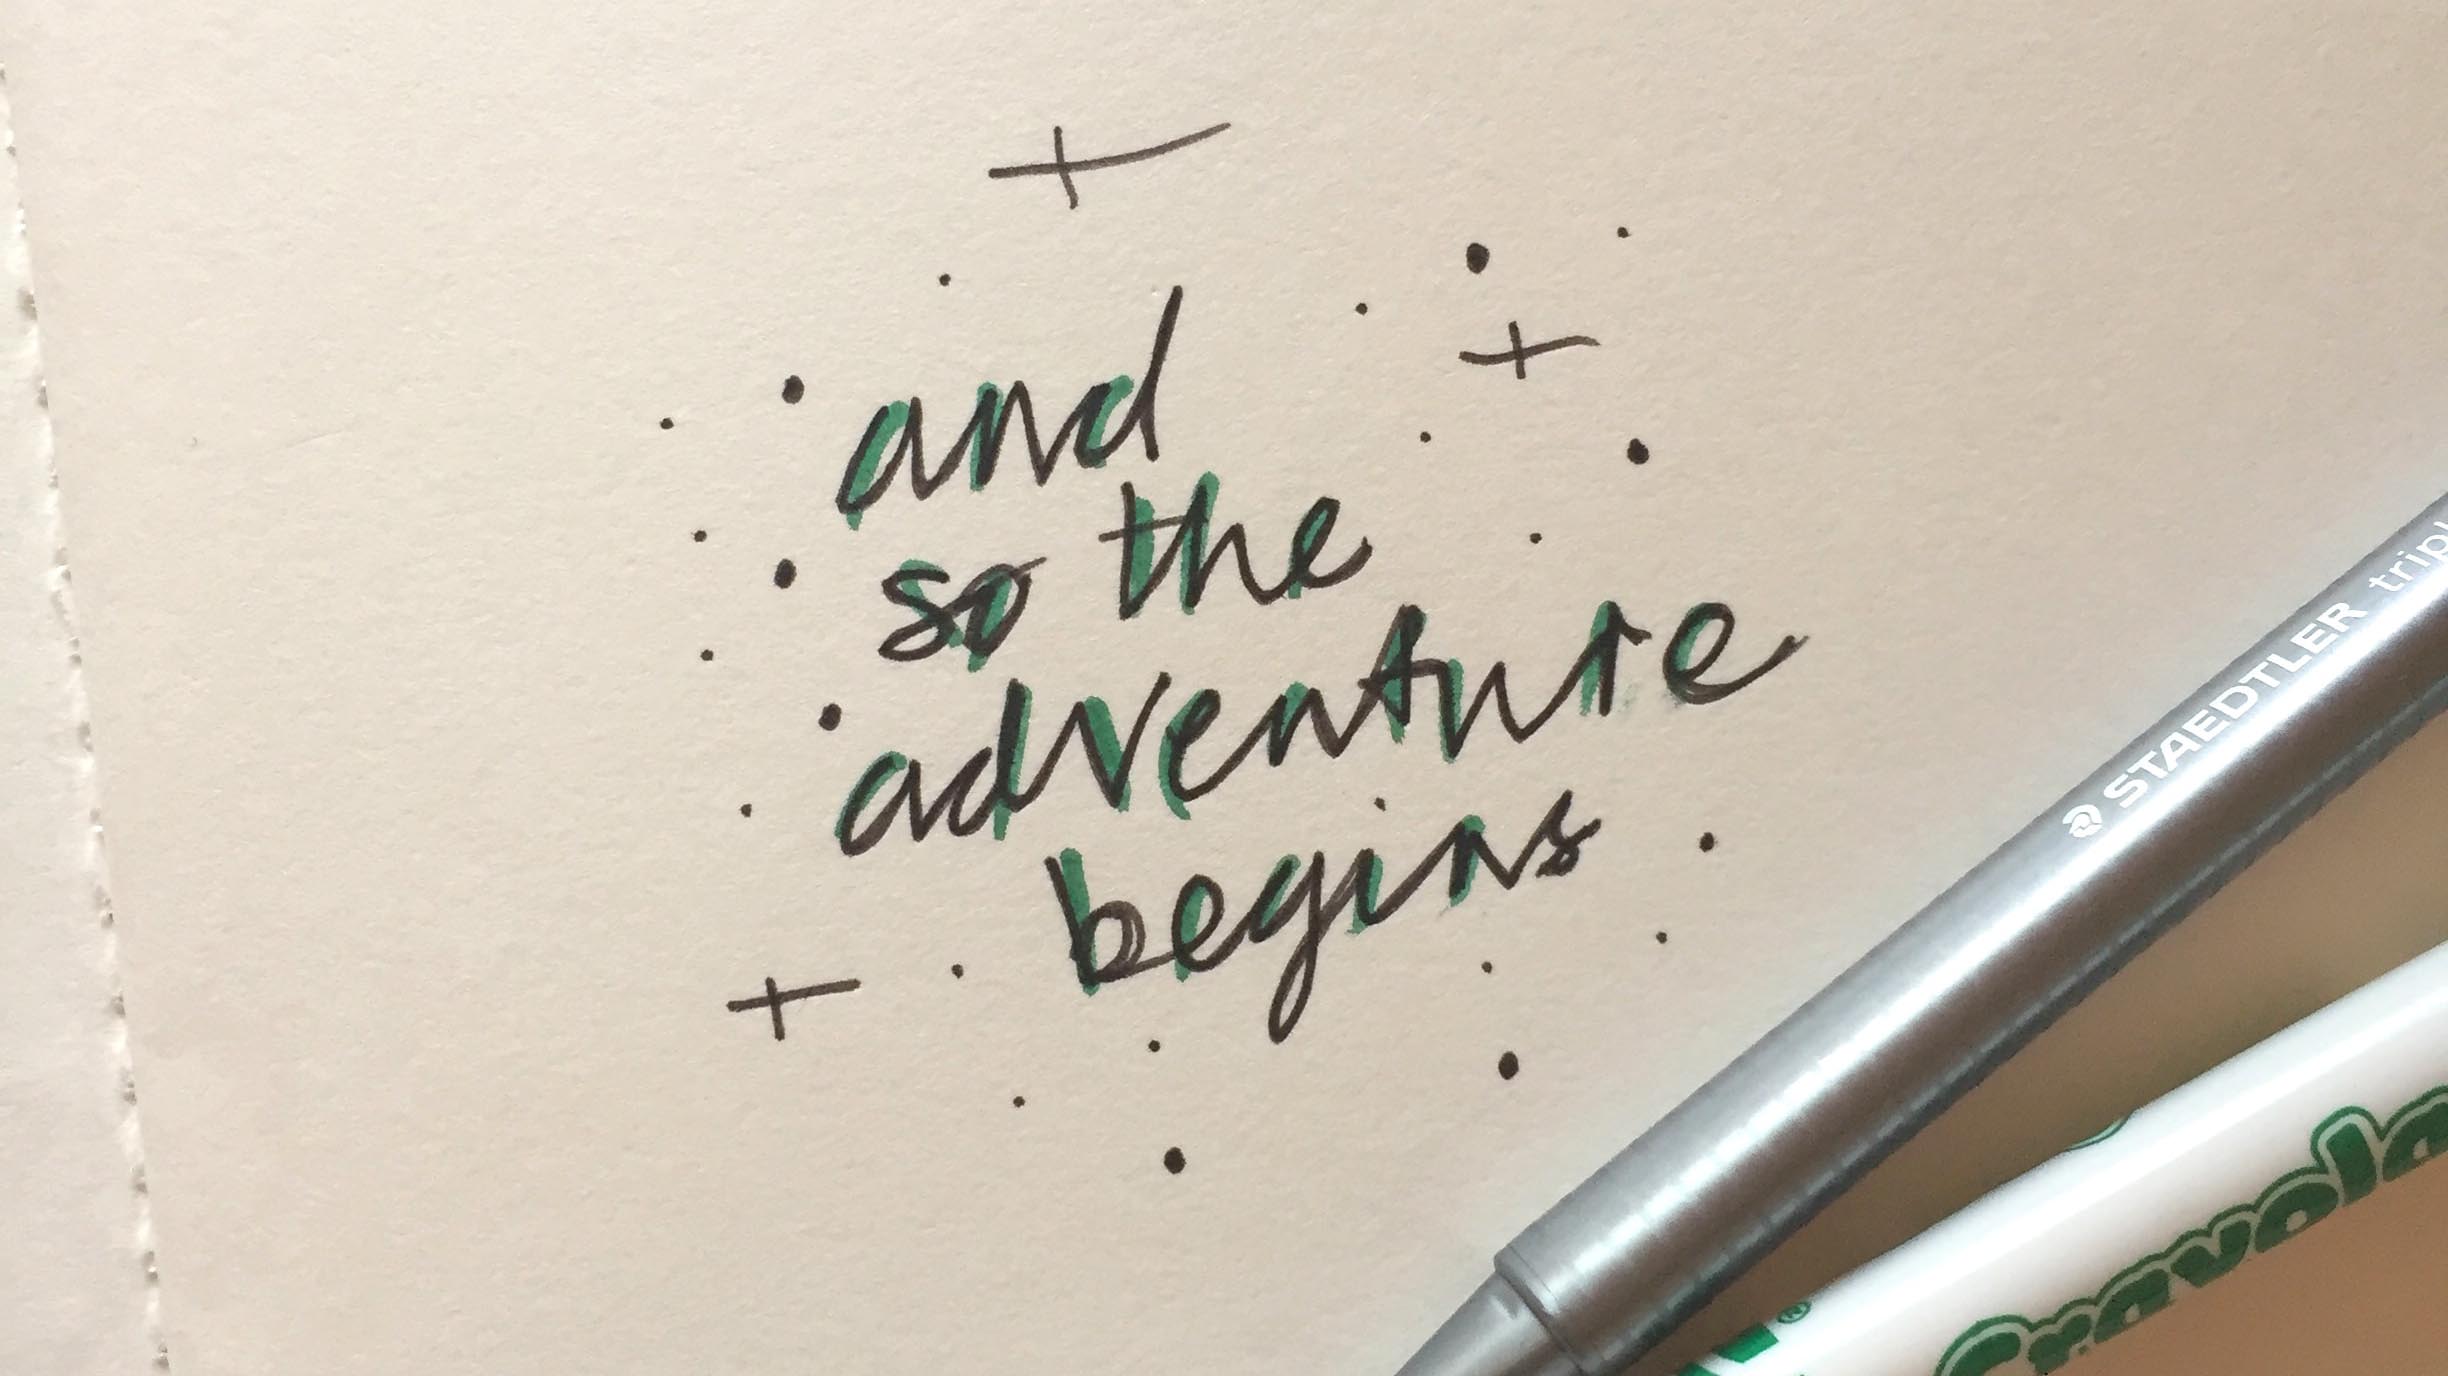 and
so the
adventure
begins
STAEDTLER tripl
Crayola
®